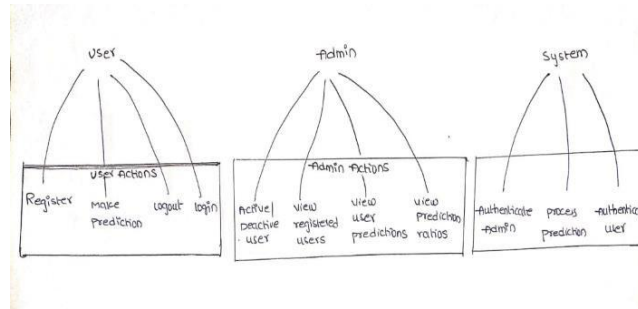 User
Admin
System
User Actions
Register
Make
Prediction
Logout
Login
Admin Actions
Active/
Deactive
user
view
registered
users
view
user
predictions
view
prediction
ratios
Authenticate
Admin
process
prediction
Authentic
user